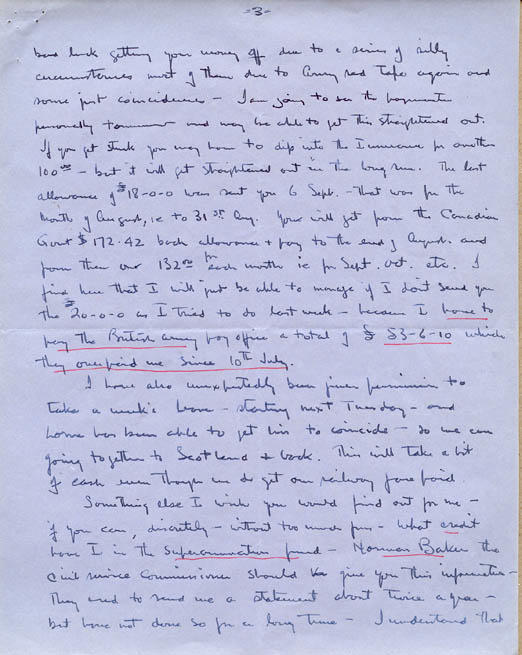 -3-
bad luck getting your money off due to a series of silly
circumstances most of them due to Army red tape again and
some just coincidence - I am going to see the paymaster
personally tomorrow and may be able to get this straightened out.
If you get stuck you may have to dip into the Insurance for another
100.00 - but it will get straightened out in the long run. The last
allowance of £18-0-0 was sent you 6 Sept. - That was for the
month of August, ie to 31st Aug. You will get from the Canadian
Govt $172.42 back allowance + pay to the end of August. and
from then on 132.00 for each month ie for Sept. Oct. etc. I
find here that I will just be able to manage if I don't send you
the £20-0-0 as I tried to do last week - because I have to
pay the British army pay office a total of £ 53-6-10 which
they overpaid me since 10th July.
I have also unexpectedly been given permission to
take a week's leave - starting next Tuesday - and
Lorne has been able to get his to coincide - so we are
going together to Scotland & back. This will take a bit
of cash even though we do get our railway fare paid.
Something else I wish you would find out for me -
if you can, discretely - without too much fuss - What credit
have I in the Superannuation fund - Norman Baker the
Civil service Commissioner should be give you this information -
They used to send me a statement about twice a year -
but have not done so for a long time - I understand that